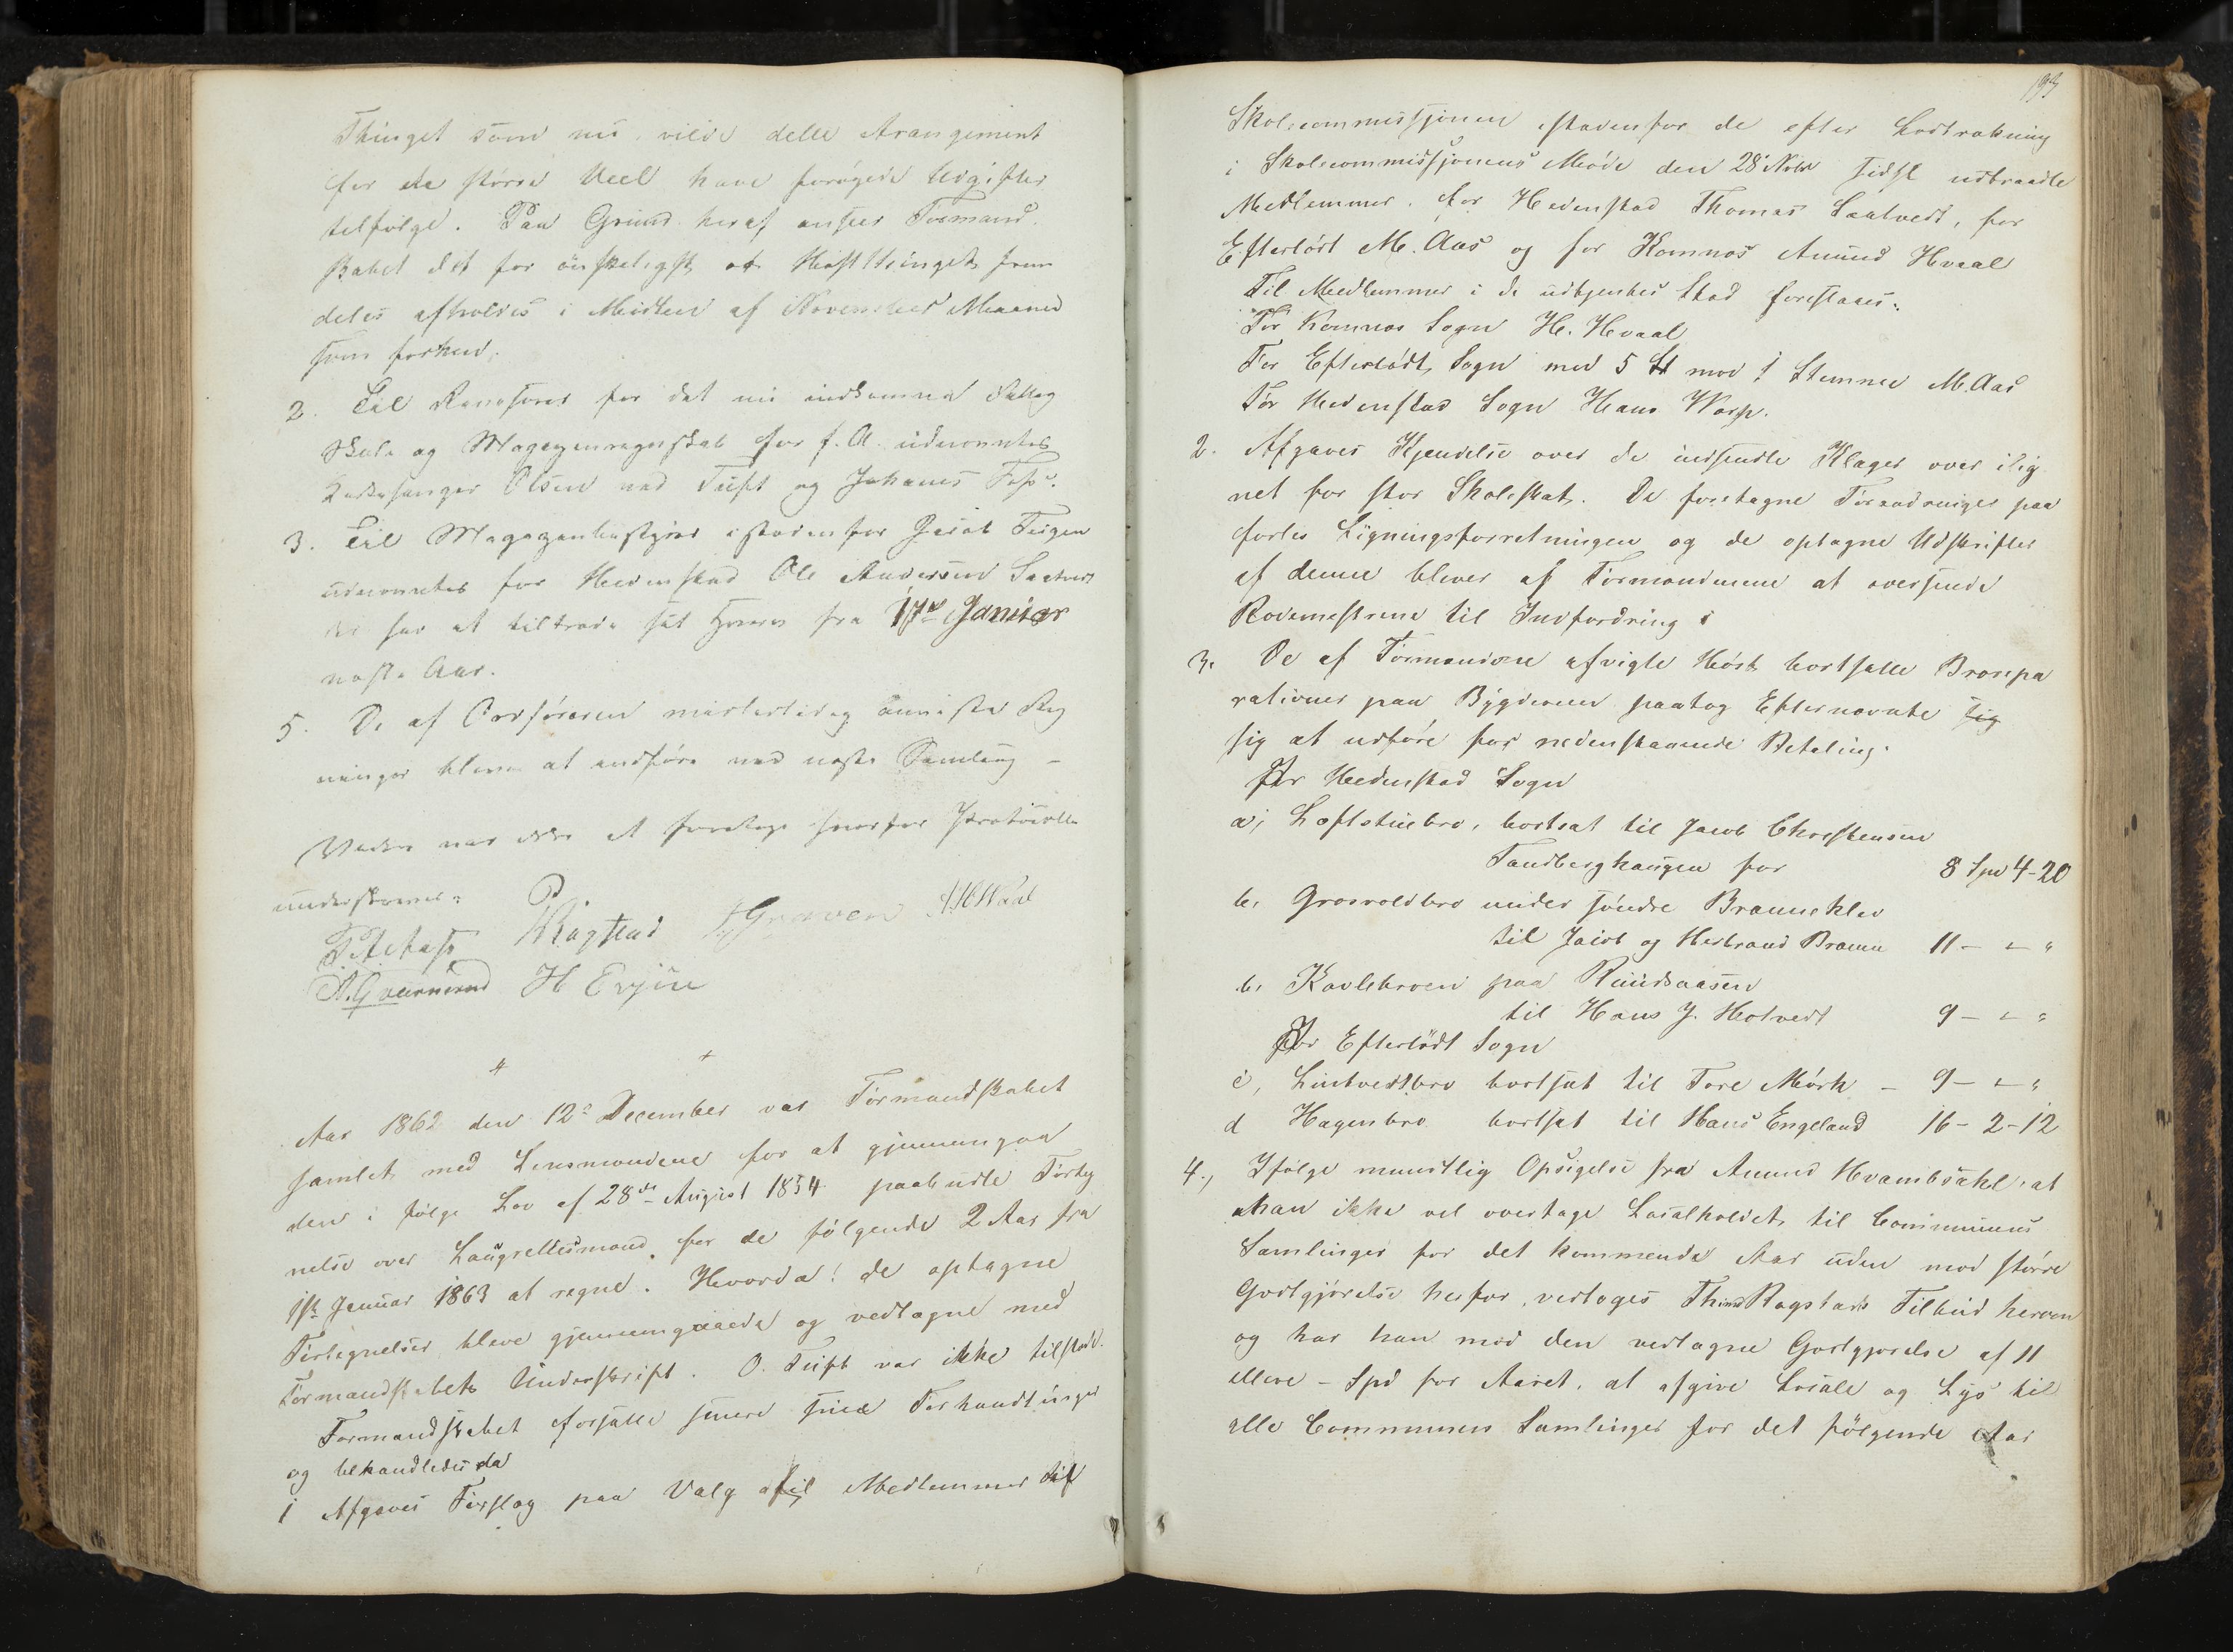 Thinget som nu vilde dette Arangement
for de større Deel have forøgede Udgifter
tilfølge. Paa Grund heraf anseer Formand
skabet det for ønskeligst at Høstthinget frem
deles afholdes i Midten af November Maaned
som forhen.
2. Til Revisorer for det nu indkomne
Skole og Magazinregnskab for f. A. udnævntes
Kirkesanger Olsen ved Tuft og Johannes Foss.
3. Til Magazinbestyrer istedenfor Jacob Teigen
udnævntes for Hedenstad Ole Andersen Saatvedt
der har at tiltræde sit Hverv fra 1ste Januar
næste Aar.
5. De af Ordføreren Reg
ninger bleve at indføre ved næste Samling –
Videre var ikke at foretage hvorfor Protocollen
underskreves:
Ragstad Graven
H Evju
Aar 1862 den 12te December var Formandskabet
samlet med Lensmændene for at gjennemgaa
den i følge Lov af 28de August 1854 paabudte Forteg
nelse over Laugrettesmænd for de følgende 2 Aar fra
1ste Januar 1863 at regne. Hvorda de optagne
Fortegnelser bleve gjennemgaaede og vedtagne med
Formandskabets Underskrift. O. Tuft var ikke tilstede.
Formandskabet forsatte senere sine Forhandlinger
og behandledes da
1 Afgaves Forslag paa Valg af Medlemmer til
193
Skolecommissionen istedenfor de efter Lodtrækning
i Skolecommissjonens Møde den 28 Novbr sidst udtraadte
Medlemmer, for Hedenstad Thomas Saatvedt, for
Efterlødt M. Aas og for Komnæs Amund Hvaal
Til Medlemmer i de udtjentes Sted forestaaes:
For Komnæs Sogn H. Hvaal
For Efterlødt Sogn med 5 St mod 1 Stemme M. Aas
For Hedenstad Sogn Hans Worp.
2. Afgaves Kjendelse over de indsendte Klager over ilig
net for stor Skoleskat. De foretagne Forandringer paa
førtes Ligningsforretningen og de optagne Udskrifter
af denne bliver af Formændene at oversende
Rodemestrene til Indfordring
3. De af Formændene afvigte Høst bortsatte Brorepa
rationer paa Bygdeveien paatog Efternævnte sig
sig at udføre for nedenstaaende Betaling.
For Hedenstad Sogn
a, Loftstuebro, bortsat til Jacob Christensen
Tandberghaugen for 8 Spd 4-20
b, Grosvoldbro under søndre Bramsklev
til Jacob og Herbrand Bramn 11 – " – "
b, Kavlebroen paa Ruudsaasen
til Hans J. Hotvedt 9 – " – "
For Efterlødt Sogn
c, Lintvedtbro bortsat til Tore Mørk – 9 – " – "
d Hagenbro bortsat til Hans Engeland 16 – 2 – 12
4., Ifølge mundtlig Opsigelse fra Amund Hvambsahl, at
han ikke vil overtage Localholdet til Communens
Samlinger for det kommende Aar uden mod større
Godtgjørelse herfor, vedtoges Ths Ragstads Tilbud herom
og har han mod den vedtagne Godtgjørelse af 11
elleve – Spd for Aaret, at afgive Locale og Lys til
alle Communens Samlinger for det følgende Aar